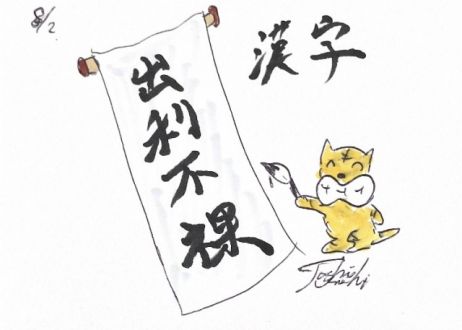 8/2
漢字
出利不裸